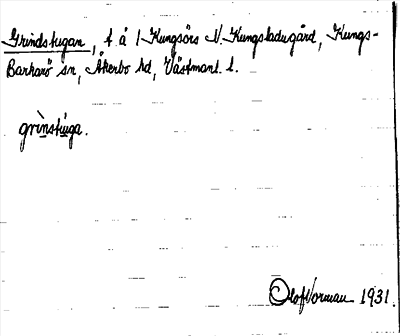 Grindstugan, t. å 1 Kungsörs N. Kungsladugård, Kungs-
Barkarö sn, Åkerbo hd, Västmanl. l.
grìnstúga.
Olof Norman 1931.